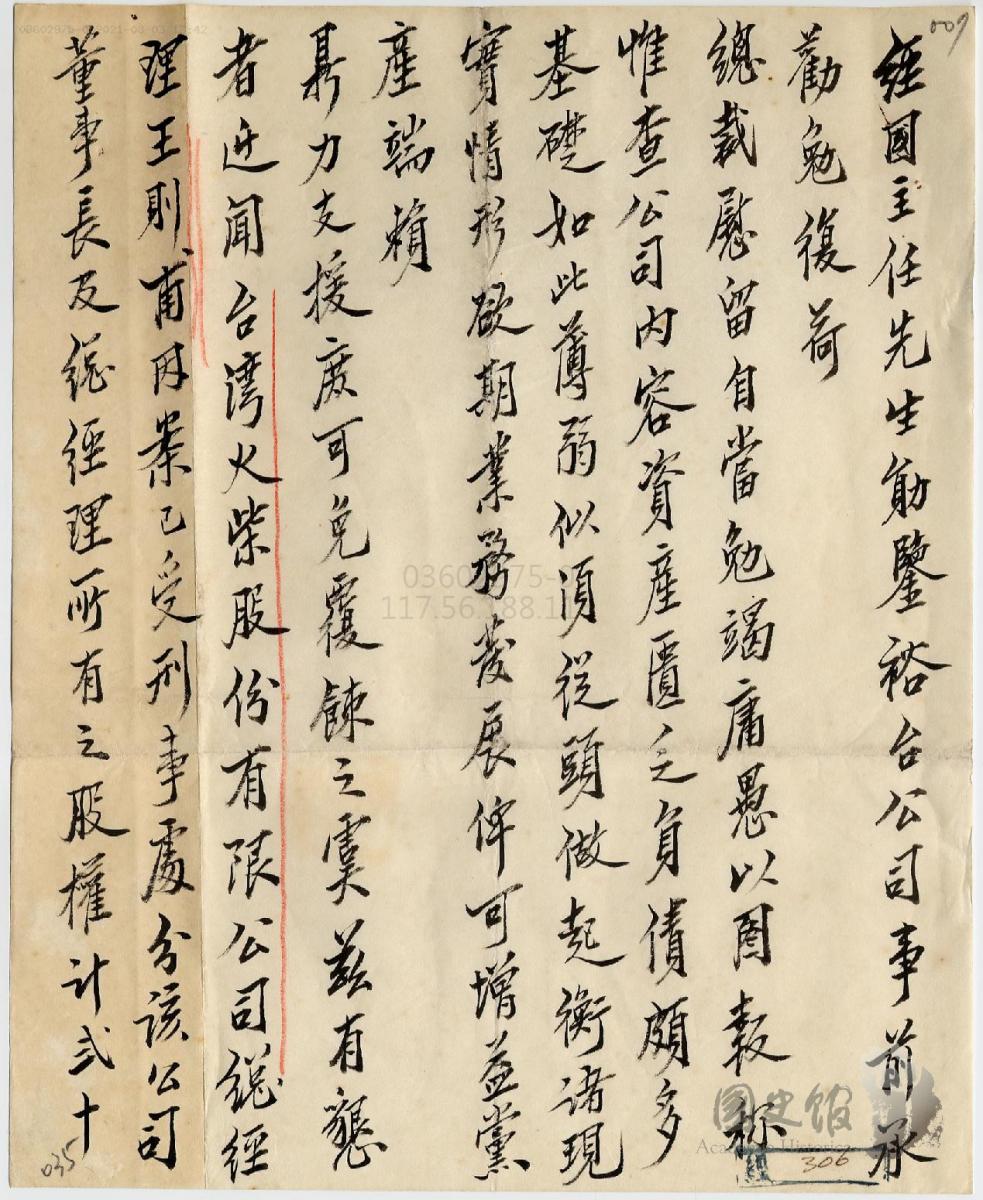 經國主任先生勛鑒裕台公司事前承
勸勉復荷
總裁慰留自當勉竭庸愚以圖報称
惟查公司内容資産匱乏負債頗多
基礎如此薄弱似須從頭做起衡諸現
實情形欲期業務發展俾可增益黨
産端賴
鼎力支援庶可免覆餗之虞兹有懇
者近聞台湾火柴股份有限公司總經
理王則甫因案已受刑事處分該公司
董事長及總經理所有之股權計弍十
009
035
306
國史館
Academia Historica
117.56.188.1